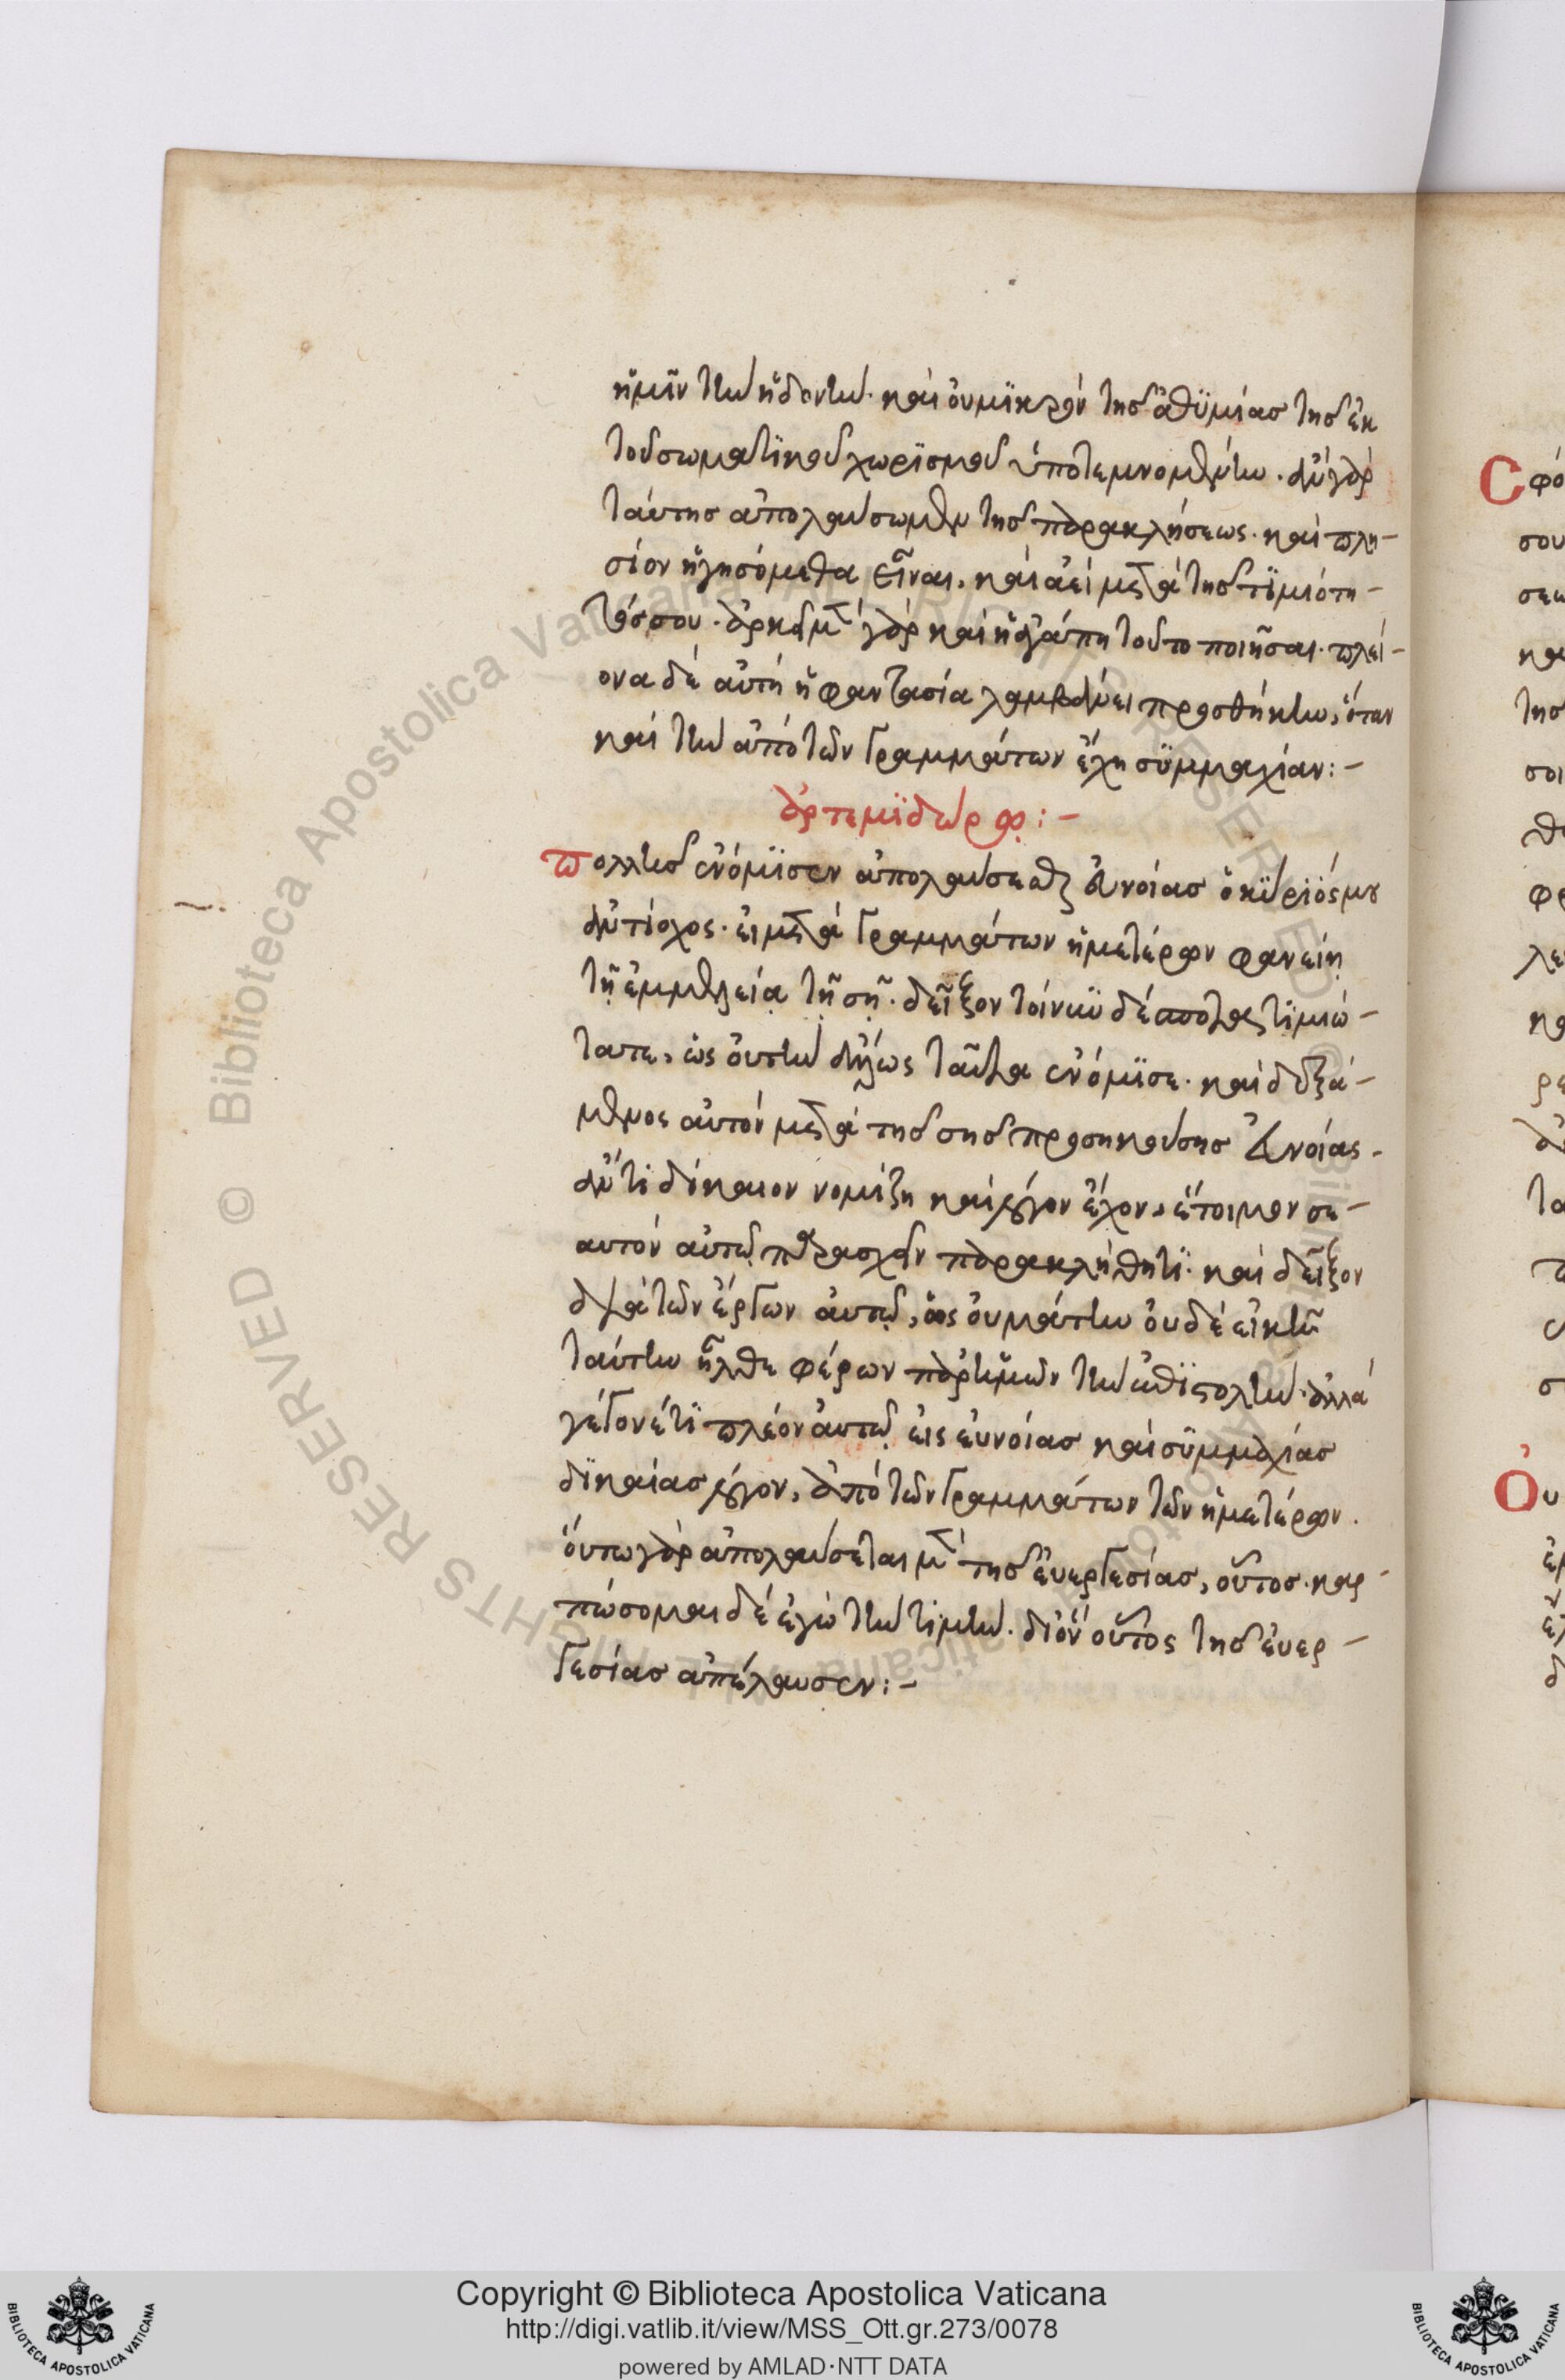 ἡμῖν τὴν ἡδονὴν. καὶ οὐ μϊκρὸν τῆς ἀθϋμίας τῆς ἐκ
τοῦ σωματϊκοῦ χωρϊσμοῦ ὑποτεμνομένην. ἂν γὰρ
ταύτης ἀπολαύσωμεν τῆς παρακλήσεως. καὶ πλη-
σίον ἡγησόμεθα εἶναι, καὶ ἀεὶ μετὰ τῆς τϊμιότη-
τός σου. ἀρκεῖ μὲν γὰρ καὶ ἡ ἀγάπη τοῦτο ποιῆσαι. πλεί-
ονα δὲ αὐτὴ ἡ φαντασία λαμβάνει προσθήκην, ὅταν
καὶ τὴν ἀπὸ τῶν γραμμάτων ἔχη σϋμμαχίαν:-
ἀρτεμϊδώρῳ:-
πολλῆς ἐνόμϊσεν ἀπολαύσεσθαι εὐνοίας ὁ κϋριϊός μου
ἀντίοχος. εἰ μετὰ γραμμάτων ἡμετέρων φανείη
τῆ ἐμμελεία τῆ σῆ. δεῖξον τοίνυν δέσποτα τϊμιώ-
τατε, ὡς οὐ τὴν ἄλλως ταῦτα ἐνόμϊσε. καὶ δεξά-
μενος αὐτὸν μετὰ τῆς σῆς προσηκούσης εὐνοίας.
ἄν τϊ δίκαιον νομίζη καὶ λόγον ἔχον, ἕτοιμον σε-
αυτὸν αὐτῷ παρασχεῖν παρακλήθητϊ. καὶ δεῖξον
διὰ τῶν ἔργων αὐτῷ, ὡς οὐ μάτην οὐδὲ εἰκῆ
ταύτην ἦλθε φέρων παρ' ἡμῶν τὴν ἐπϊστολὴν. ἀλλὰ
γέγονέ τϊ πλέον αὐτῷ εἰς εὐνοίας καὶ σϋμμαχίας
δϊκαίας λόγον, ἀπὸ τῶν γραμμάτων τῶν ἡμετέρων.
οὕτω γὰρ ἀπολαύσεται μὲν τῆς εὐεργεσίας, οὗτος. καρ-
πώσομαι δὲ ἐγὼ τὴν τϊμὴν. δι' ὧν οὗτος τῆς εὐερ-
γεσίας ἀπέλαυσεν:-
Copyright © Biblioteca Apostolica Vaticana
http://digi.vatlib.it/view/MSS_Ott.gr.273/0078
powered by AMLAD·NTT DATA